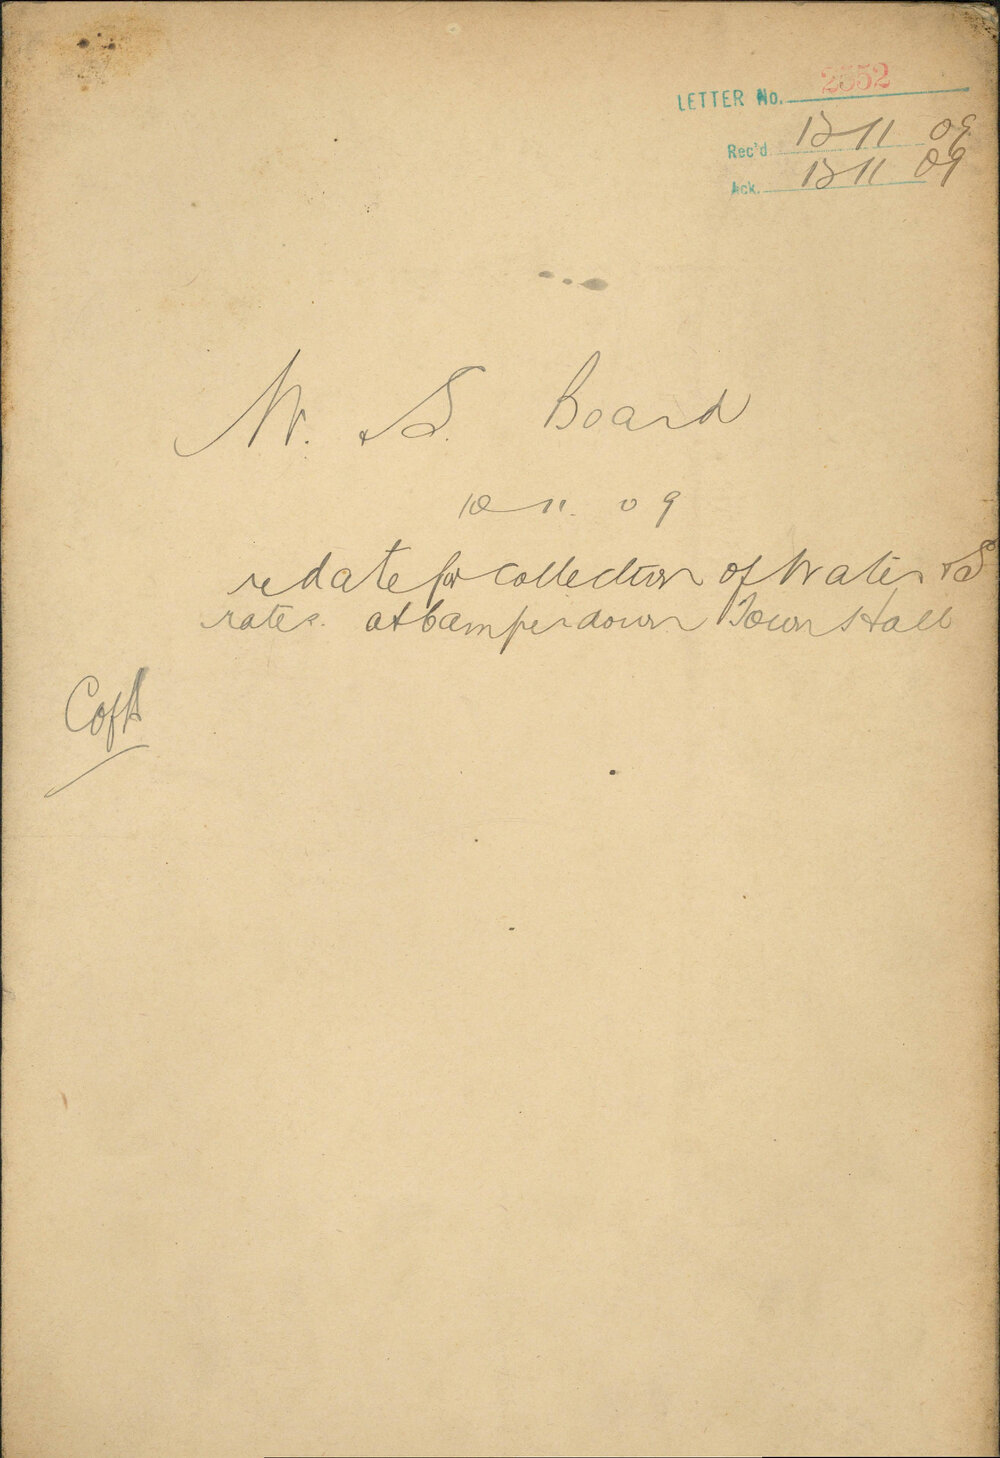 LETTER No. 2552
Rec'd 12 11 09
Ack. 12 11 09
W. & S. Board
10 11. 09
re date for collection of Water & S
rates. at Camperdown Town Hall